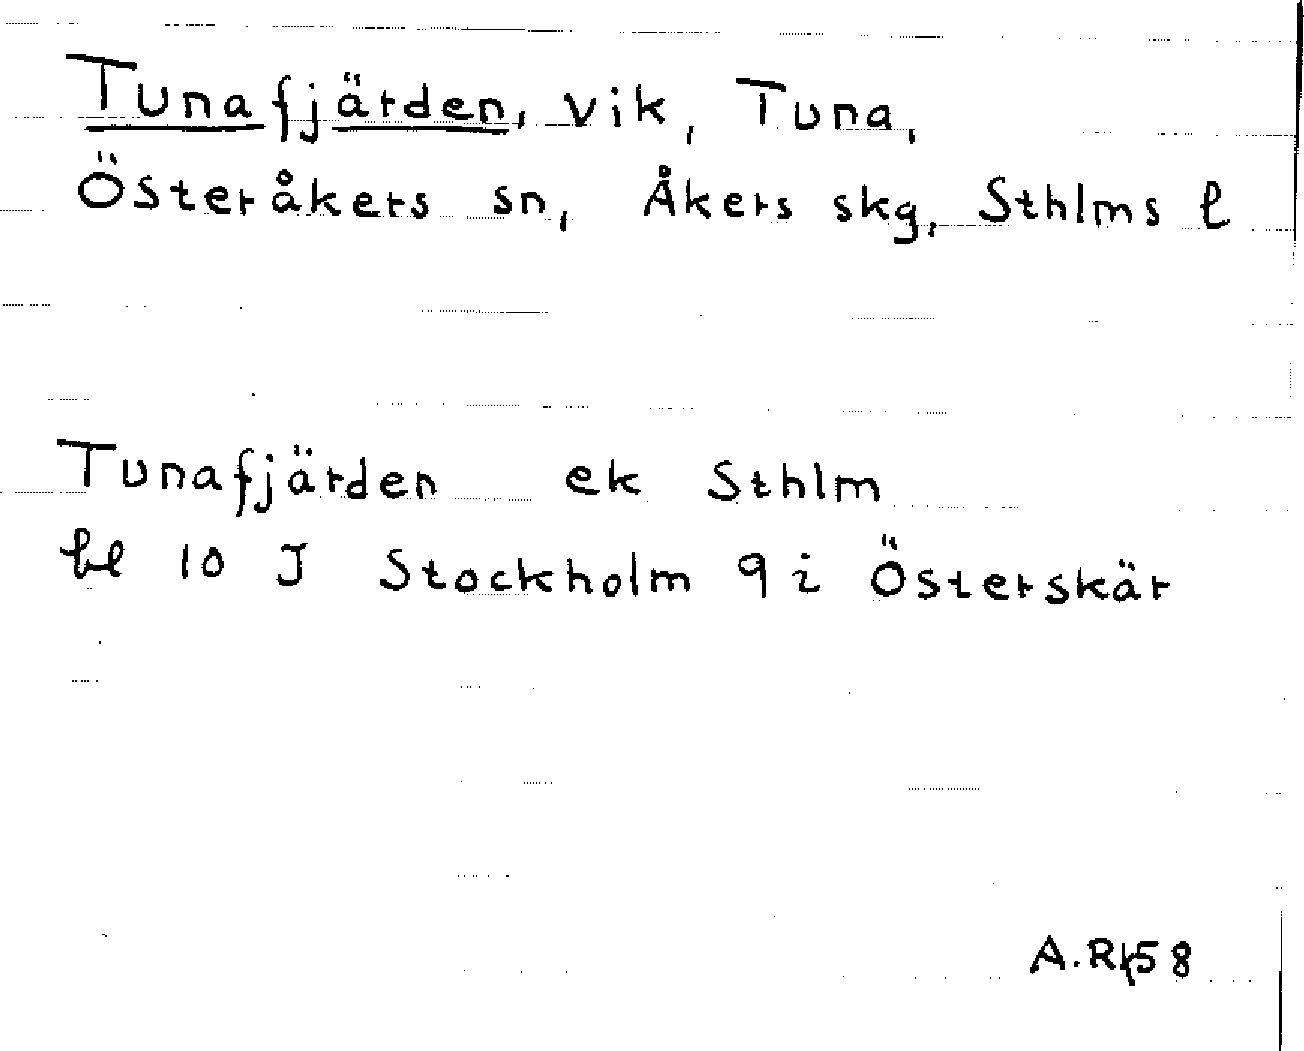 Tunafjärden, vik, Tuna,
Österåkers sn, Åkers skg, Sthlms l
Tunafjärden ek Sthlm
bl 10 J Stockholm 9 i Österskär
A.R 58